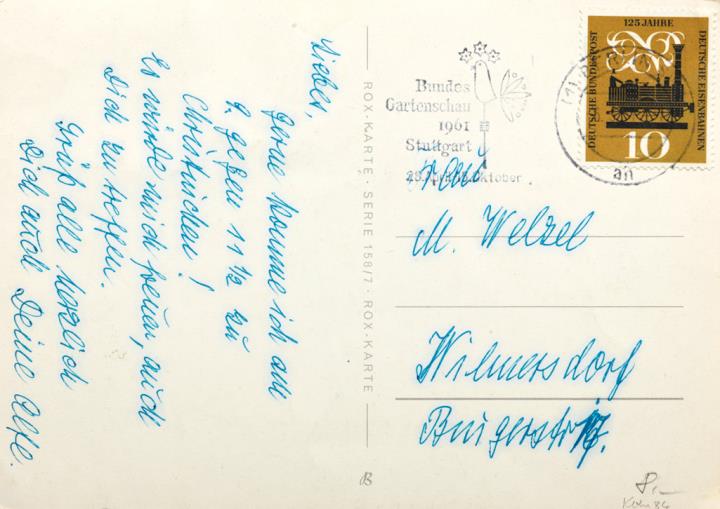 Liebes,
Gerne komme ich am
9. gegen 11 1/2 zu
Christinchen!
Es würde mich freuen, auch
Dich zu treffen.
Grüß alle herzlich
Dich auch Deine Alfe.
ROX-KARTE · SERIE 158/7 · ROX-KARTE
Bundes
Gartenschau
1961
Stuttgart
Oktober
125 JAHRE
DEUTSCHE EISENBAHNEN
DEUTSCHE BUNDESPOST
10
an
Frau
M. Welzel
Wilmersdorf
B
8,—